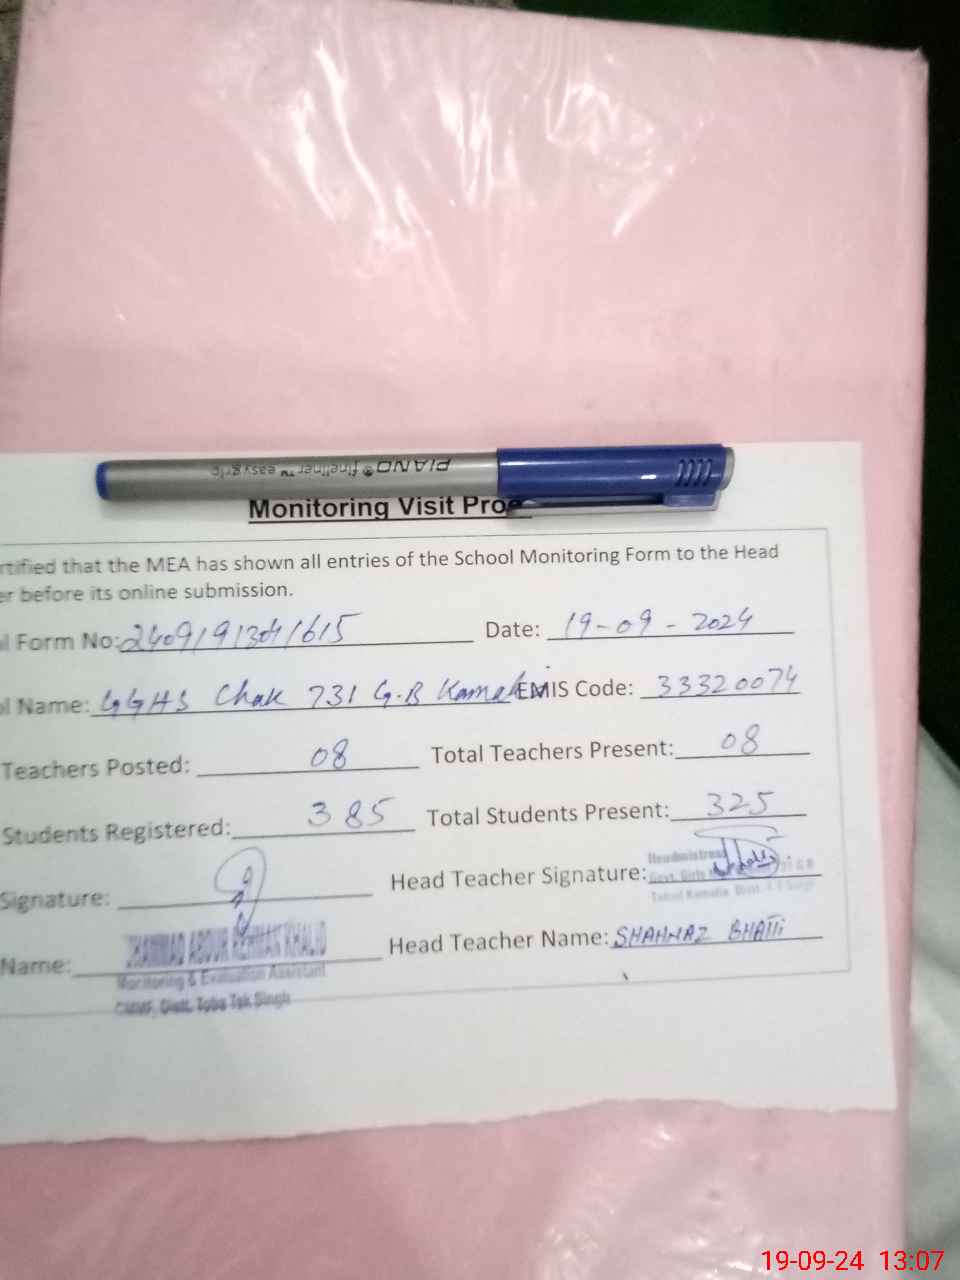 PIANO® fineliner™ easygrip
Monitoring Visit Proo
rtified that the MEA has shown all entries of the School Monitoring Form to the Head
er before its online submission.
l Form No: Date: 19-09-2024
l Name: GGHS Chak 731 G.B Kamalia EMIS Code: 33320074
Teachers Posted: 08 Total Teachers Present: 08
Students Registered: 385 Total Students Present: 325
Signature: Head Teacher Signature:
Headmistress
Govt. Girls
Name: Head Teacher Name: SHAHNAZ BHATTI
KHALID
Monitoring & Evaluation Assistant
Distt. Toba Tek Singh
19-09-24 13:07